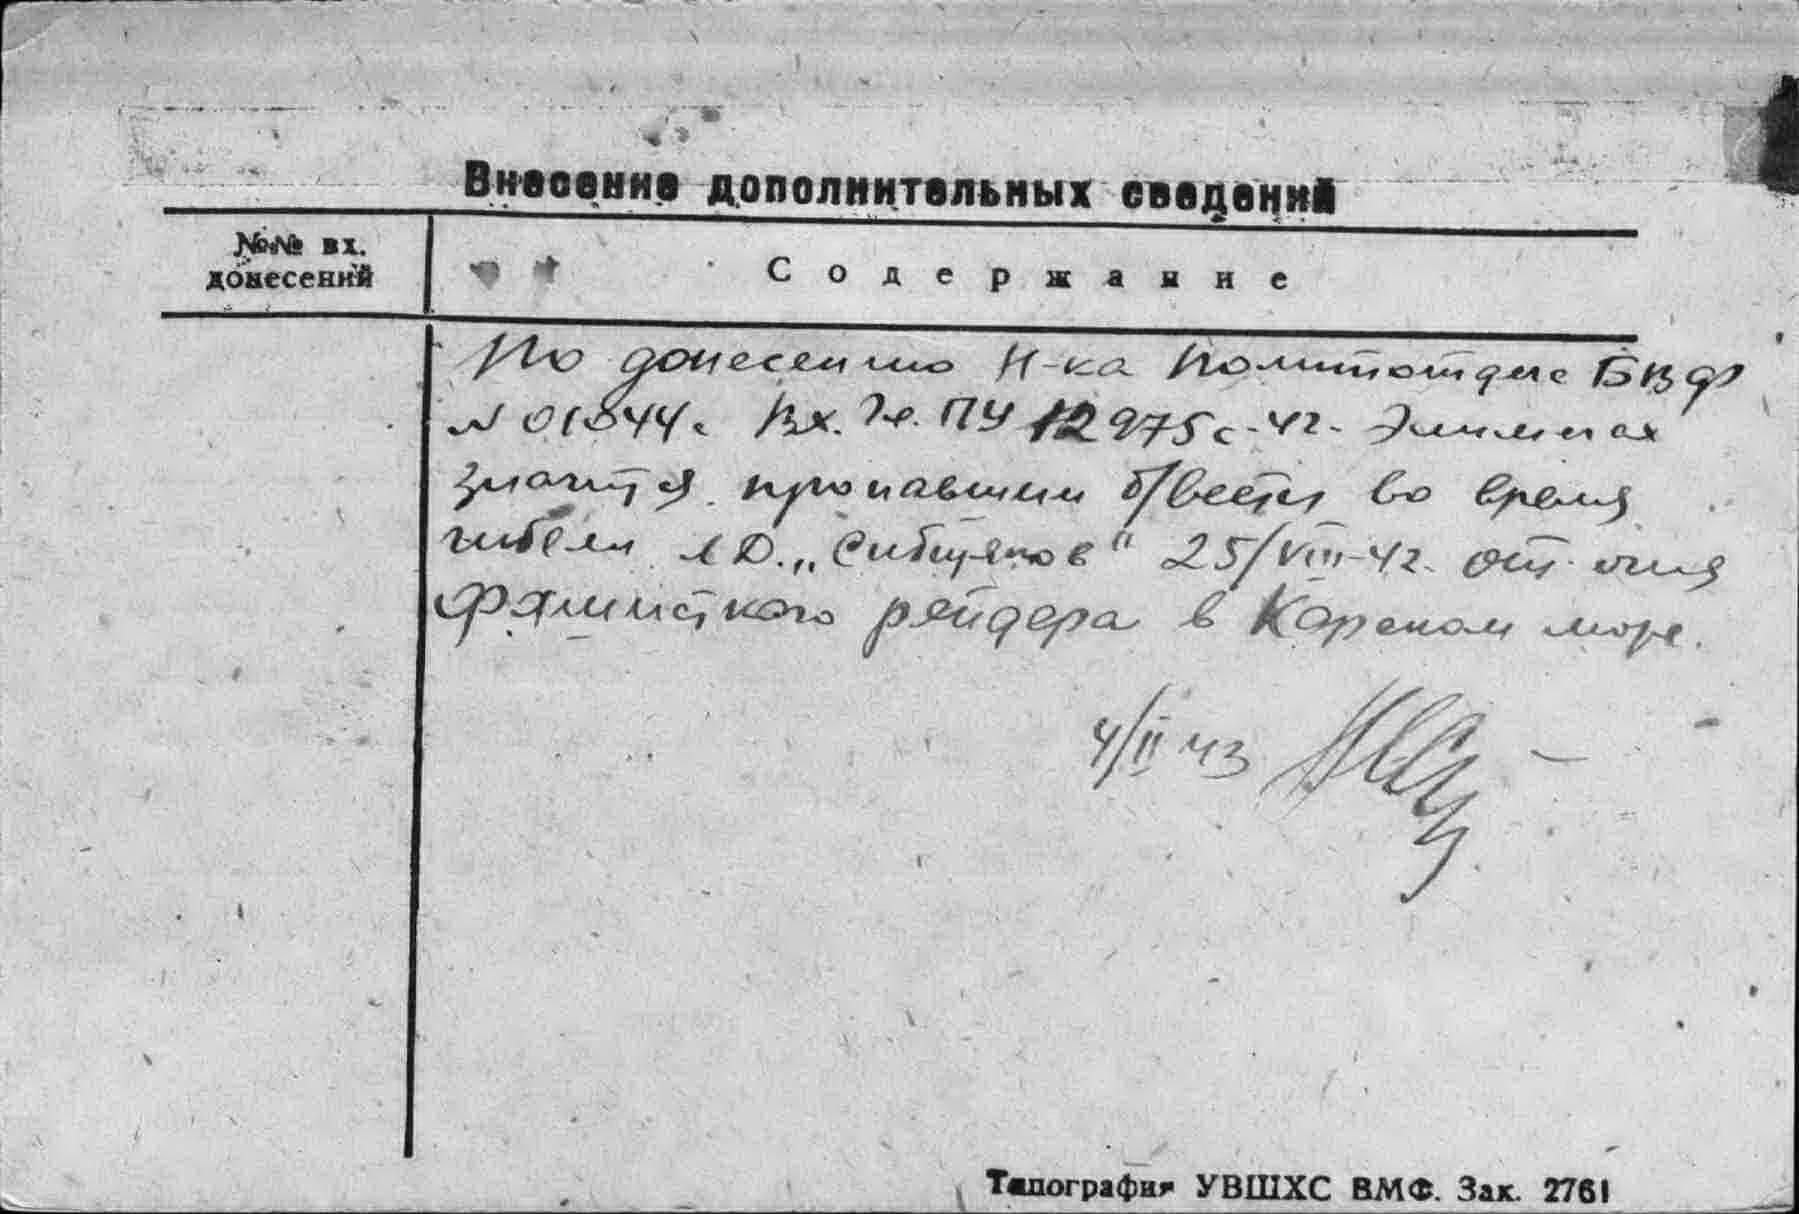 Внесение дополнительных сведений
№№ вх.
донесений
Содержание
По донесению Н-ка Политотдела БВФ
№ 01844с Вх. Гл. ПУ 12975с-42. Элимелах
значится пропавшим б/вести во время
гибели ЛД. „Сибиряков" 25/VIII-42. от огня
Фашисткого рейдера в Карском море.
4/II 43
Типография УВШХС ВМФ. Зак. 2761